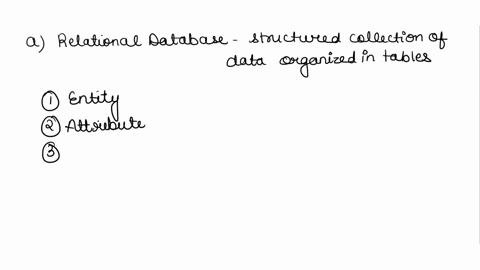 a) Relational Database - structured collection of
data organized in tables
① Entity
② Attribute
③